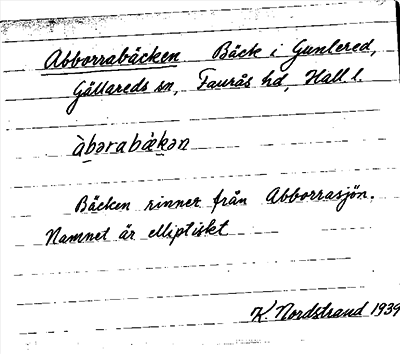 Abborrabäcken Bäck i Gunlered,
Gällareds sn, Faurås hd, Hall l.
àbərabǽkən
Bäcken rinner från Abborrasjön.
Namnet är elliptiskt
K. Nordstrand 1939